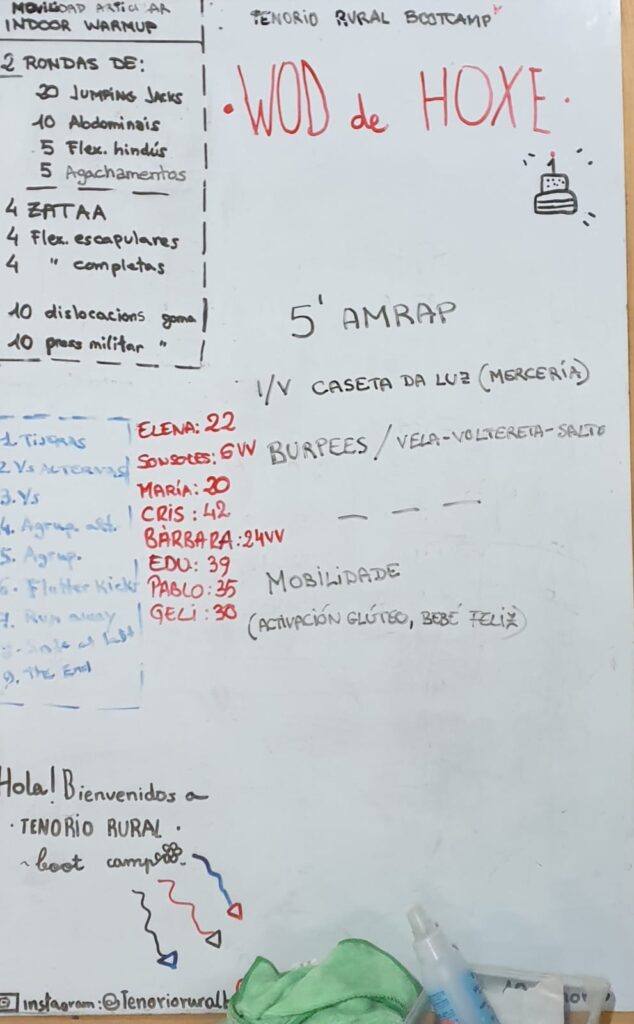 MOVILIDAD ARTICULAR
INDOOR WARMUP
2 RONDAS DE:
20 JUMPING JACKS
10 Abdominais
5 Flex. hindús
5 Agachamentos
4 ZATAA
4 Flex. escapulares
4 " completas
10 dislocacions goma
10 press militar "
TENORIO RURAL BOOTCAMP
· WOD de HOXE ·
1
5' AMRAP
I/V CASETA DA LUZ (MERCERÍA)
BURPEES / VELA-VOLTERETA-SALTO
MOBILIDADE
(ACTIVACIÓN GLÚTEO, BEBÉ FELIZ)
1. Tijeras
2. Vs ALTERNAS
3. Vs
4. Agrup. alt.
5. Agrup.
6. Flutter Kicks
7. Run away
at last
9. The End
ELENA: 22
SONSOLES: 6VV
MARÍA: 20
CRIS: 42
BÁRBARA: 24VV
EDU: 39
PABLO: 35
GELI: 30
Hola! Bienvenidos a
· TENORIO RURAL ·
~boot camp
instagram: @Tenoriorural